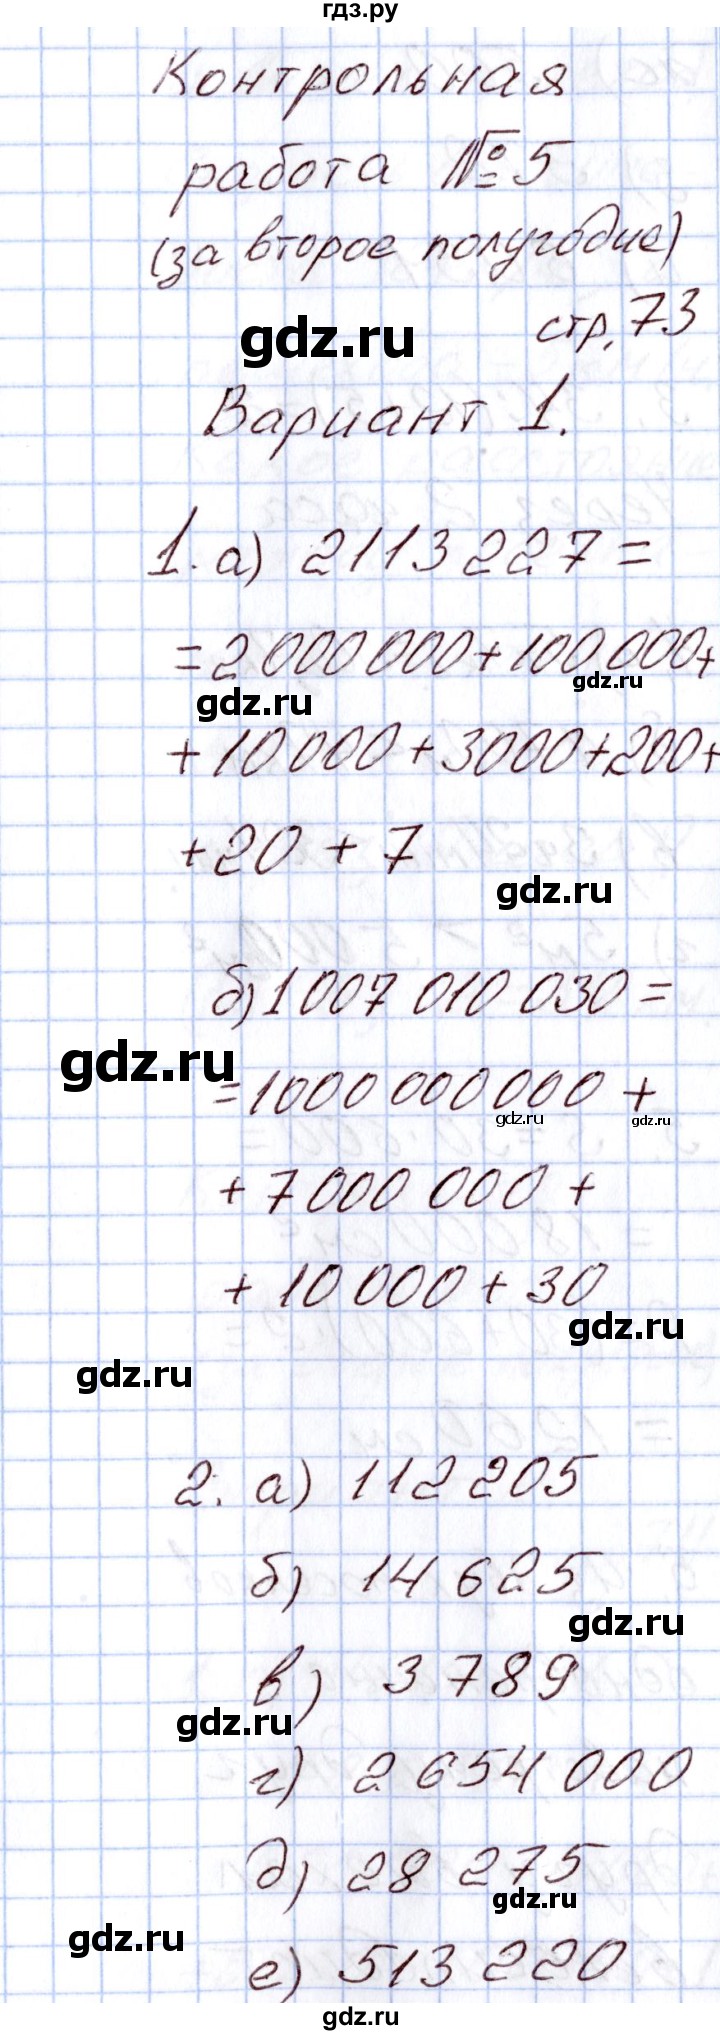 гдз.ру
Контрольная
работа № 5
(за второе полугодие)
gdz.ru
стр. 73
Вариант 1.
1. а) 2113 227 =
= 2 000 000 + 100 000 +
gdz.ru
gdz.ru
+ 10 000 + 3000 + 200 +
+ 20 + 7
gdz.ru
б) 1 007 010 030 =
gdz.ru
= 1000 000 000 +
gdz.ru
gdz.ru
+ 7 000 000 +
+ 10 000 + 30
gdz.ru
gdz.ru
2. а) 112 205
б) 14 625
gdz.ru
в) 3 789
gdz.ru
г) 2 654 000
д) 28 275
gdz.ru
gdz.ru
е) 513 220
gdz.ru